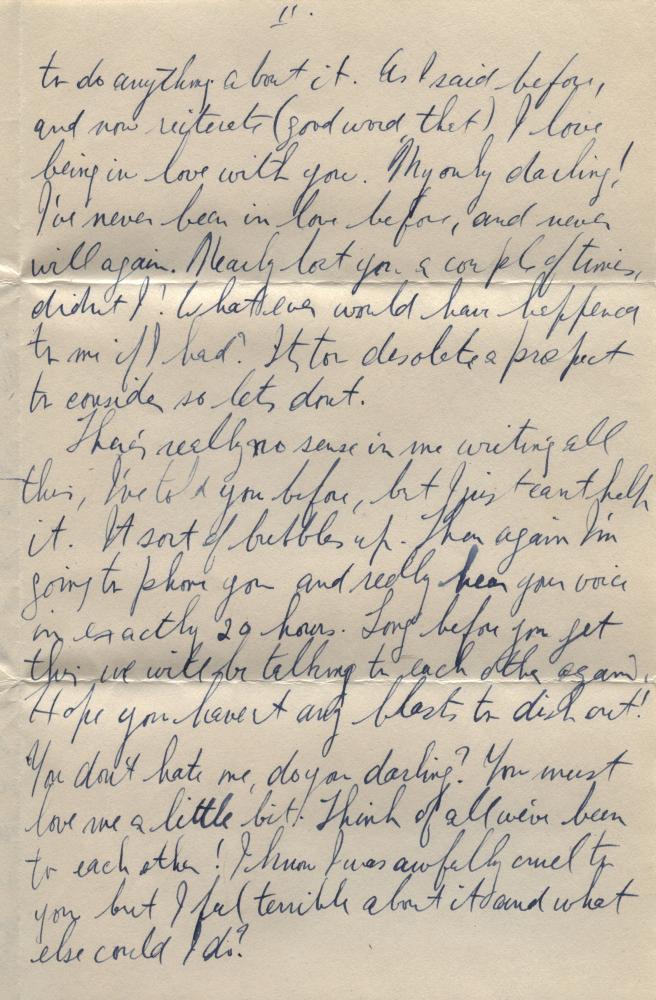 11.
to do anything about it. As I said before,
and now reiterate (good word, that) I love
being in love with you. My only darling!
I've never been in love before, and never
will again. Nearly lost you a couple of times,
didn't I! Whatever would have happened
to me if I had? It's too desolate a prospect
to consider so lets dont.
There's really no sense in me writing all
this, I've told you before, but I just can't help
it. It sort of bubbles up. Then again I'm
going to phone you and really hear your voice
in exactly 20 hours. Long before you get
this we will be talking to each other again.
Hope you haven't any blasts to dish out!
You don't hate me, do you darling? You must
love me a little bit. Think of all we've been
to each other! I know I was awfully cruel to
you but I feel terrible about it and what
else could I do?